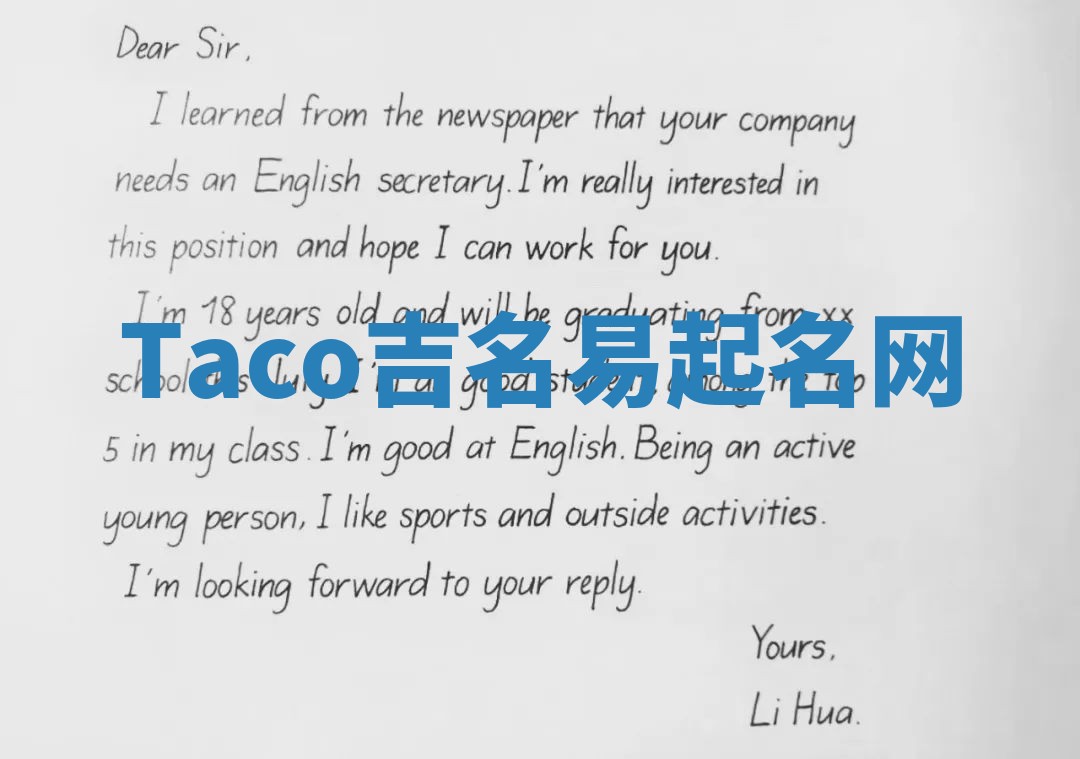 Dear Sir,
I learned from the newspaper that your company
needs an English secretary. I'm really interested in
this position and hope I can work for you.
I'm 18 years old and will be graduating from xx
Taco吉名易起名网
school this July. I'm a good student, among the top
5 in my class. I'm good at English. Being an active
young person, I like sports and outside activities.
I'm looking forward to your reply.
Yours,
Li Hua.